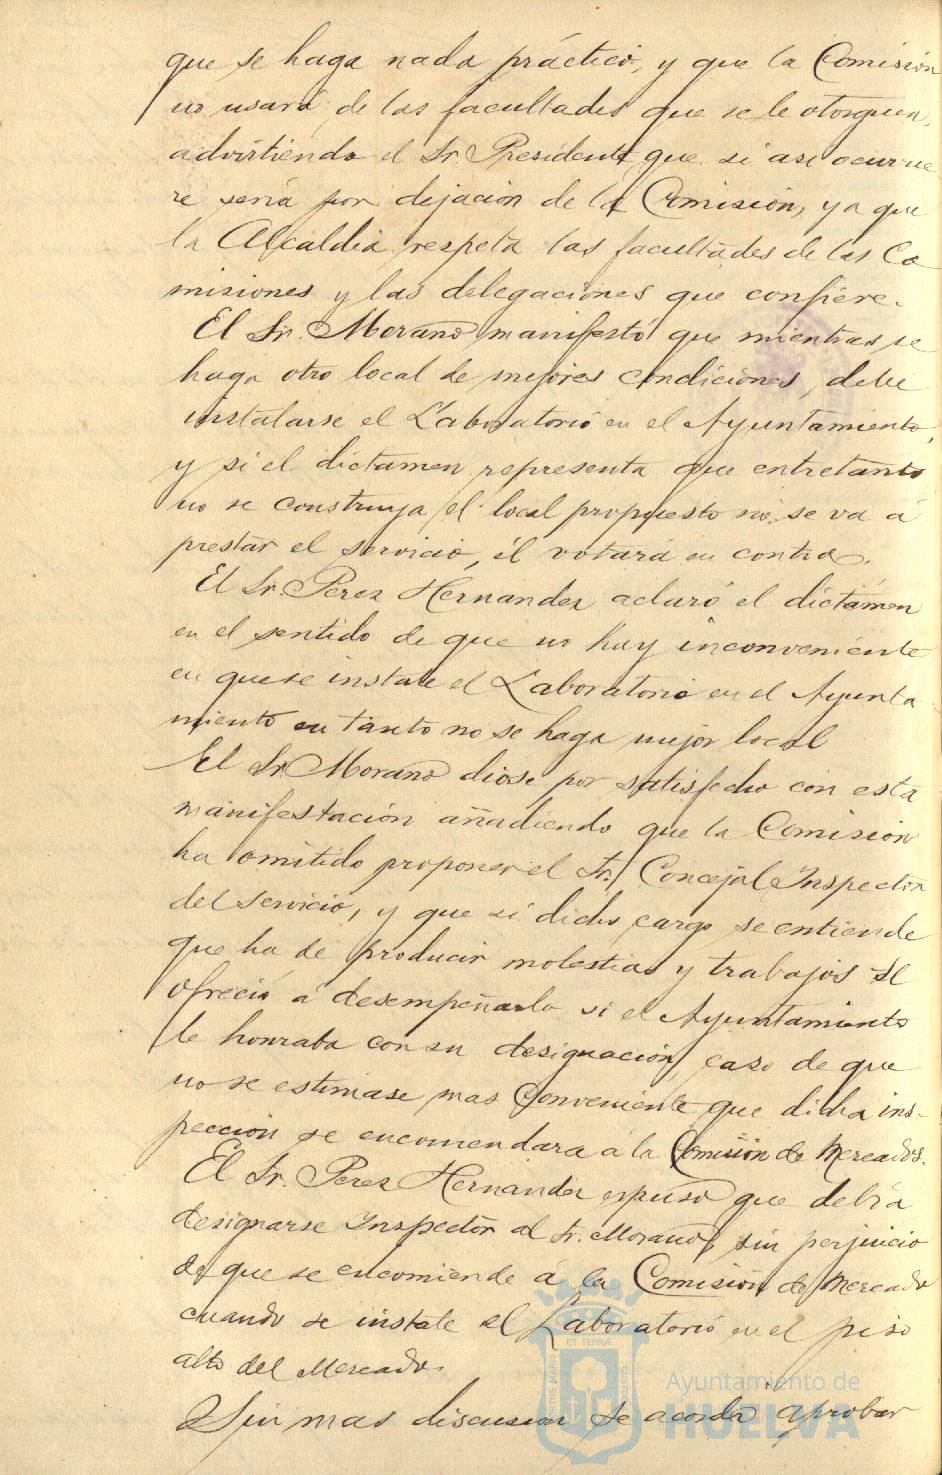 que se haga nada práctico, y que la Comisión
no usará de las facultades que se le otorguen,
advirtiendo el Sr. Presidente que si asi ocurrie
re sería por dejación de la Comisión, ya que
la Alcaldia respeta las facultades de las Co
misiones y las delegaciones que confiere.
El Sr. Morano manifestó que mientras se
haga otro local de mejores condiciones, debe
instalarse el Laboratorio en el Ayuntamiento,
y si el dictamen representa que entretanto
no se construya el local propuesto no se va á
prestar el servicio, él votará en contra.
El Sr. Perez Hernandez aclaró el dictámen
en el sentido de que no hay inconveniente
en que se instale el Laboratorio en el Ayunta
miento en tanto no se haga mejor local
El Sr Morano diose por satisfecho con esta
manifestación añadiendo que la Comisión
ha omitido proponer el Sr. Concejal Inspector
del servicio, y que si dicho cargo se entiende
que ha de producir molestias y trabajos se
ofrecia á desempeñarlo si el Ayuntamiento
le honraba con su designación, caso de que
no se estimase mas conveniente que dicha ins-
peccion se encomendara á la Comisión de Mercados.
El Sr. Perez Hernandez expuso que debía
designarse Inspector al Sr. Morano, sin perjuicio
de que se encomiende á la Comisión de Mercado
cuando se instale el Laboratorio en el piso
alto del Mercado.
Sin mas discusion se acordó aprobar
Ayuntamiento de
HUELVA